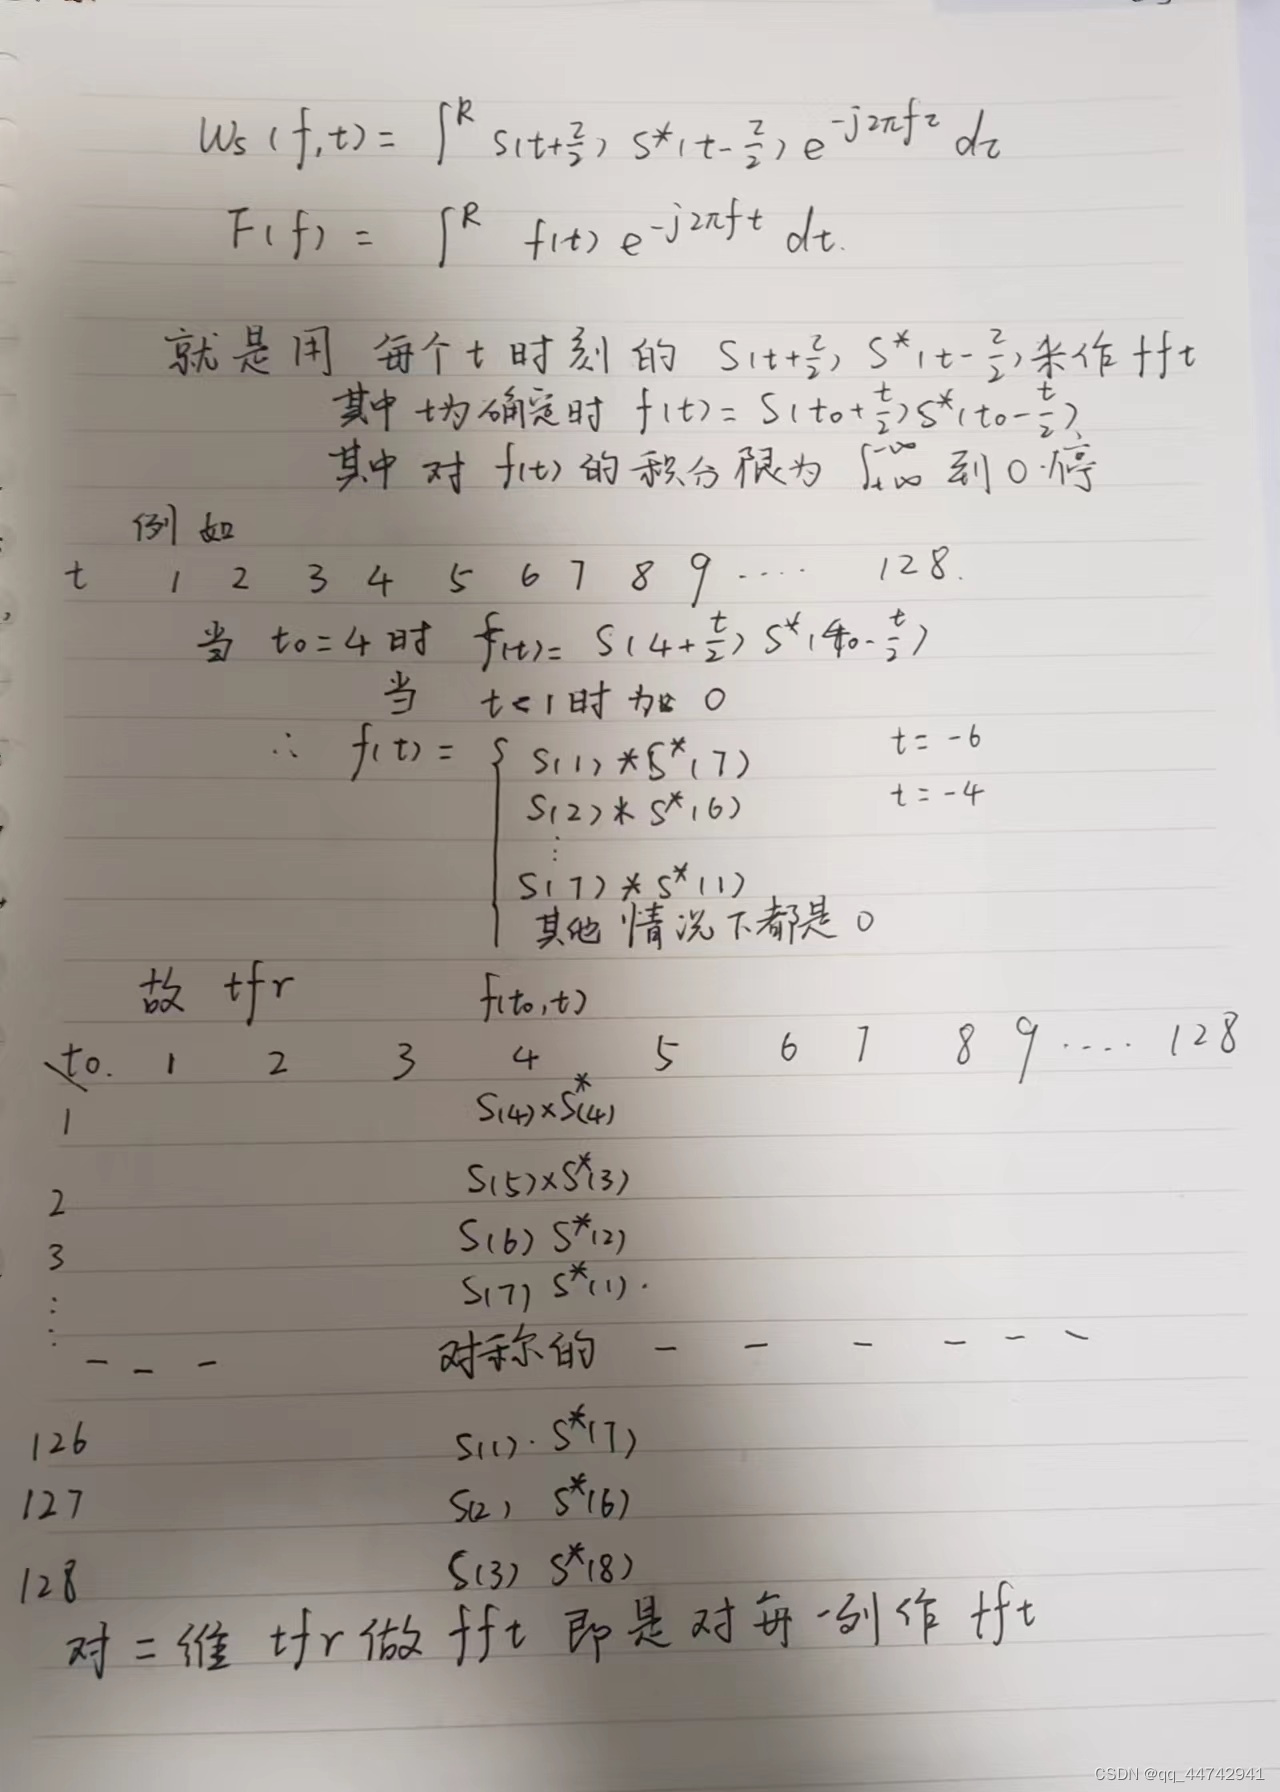 Ws(f,t) = ∫^R S(t+τ/2) S*(t-τ/2) e^{-j2πfτ} dτ
F(f) = ∫^R f(t) e^{-j2πft} dt.
就是用 每个t时刻的 S(t+τ/2) S*(t-τ/2)来作fft
其中t为确定时 f(t)=S(t0+t/2)S*(t0-t/2)
其中对 f(t)的积分限为 ∫_{+∞}^{-∞} 到0.停
例如
t 1 2 3 4 5 6 7 8 9 .... 128.
当 t0=4时 f(t)= S(4+t/2) S*(40-t/2)
当 t<1时为 0
∴ f(t) = { S(1)*S*(7) t=-6
S(2)*S*(6) t=-4
⋮
S(7)*S*(1)
其他情况下都是0
故 tfr f(t0,t)
t0. 1 2 3 4 5 6 7 8 9 .... 128
1 S(4)×S*(4)
2 S(5)×S*(3)
3 S(6) S*(2)
⋮ S(7) S*(1).
- - - 对称的 - - - - - -
126 S(1). S*(7)
127 S(2) S*(6)
128 S(3) S*(8)
对二维 tfr做 fft 即是对每一列作 fft
CSDN @qq_44742941